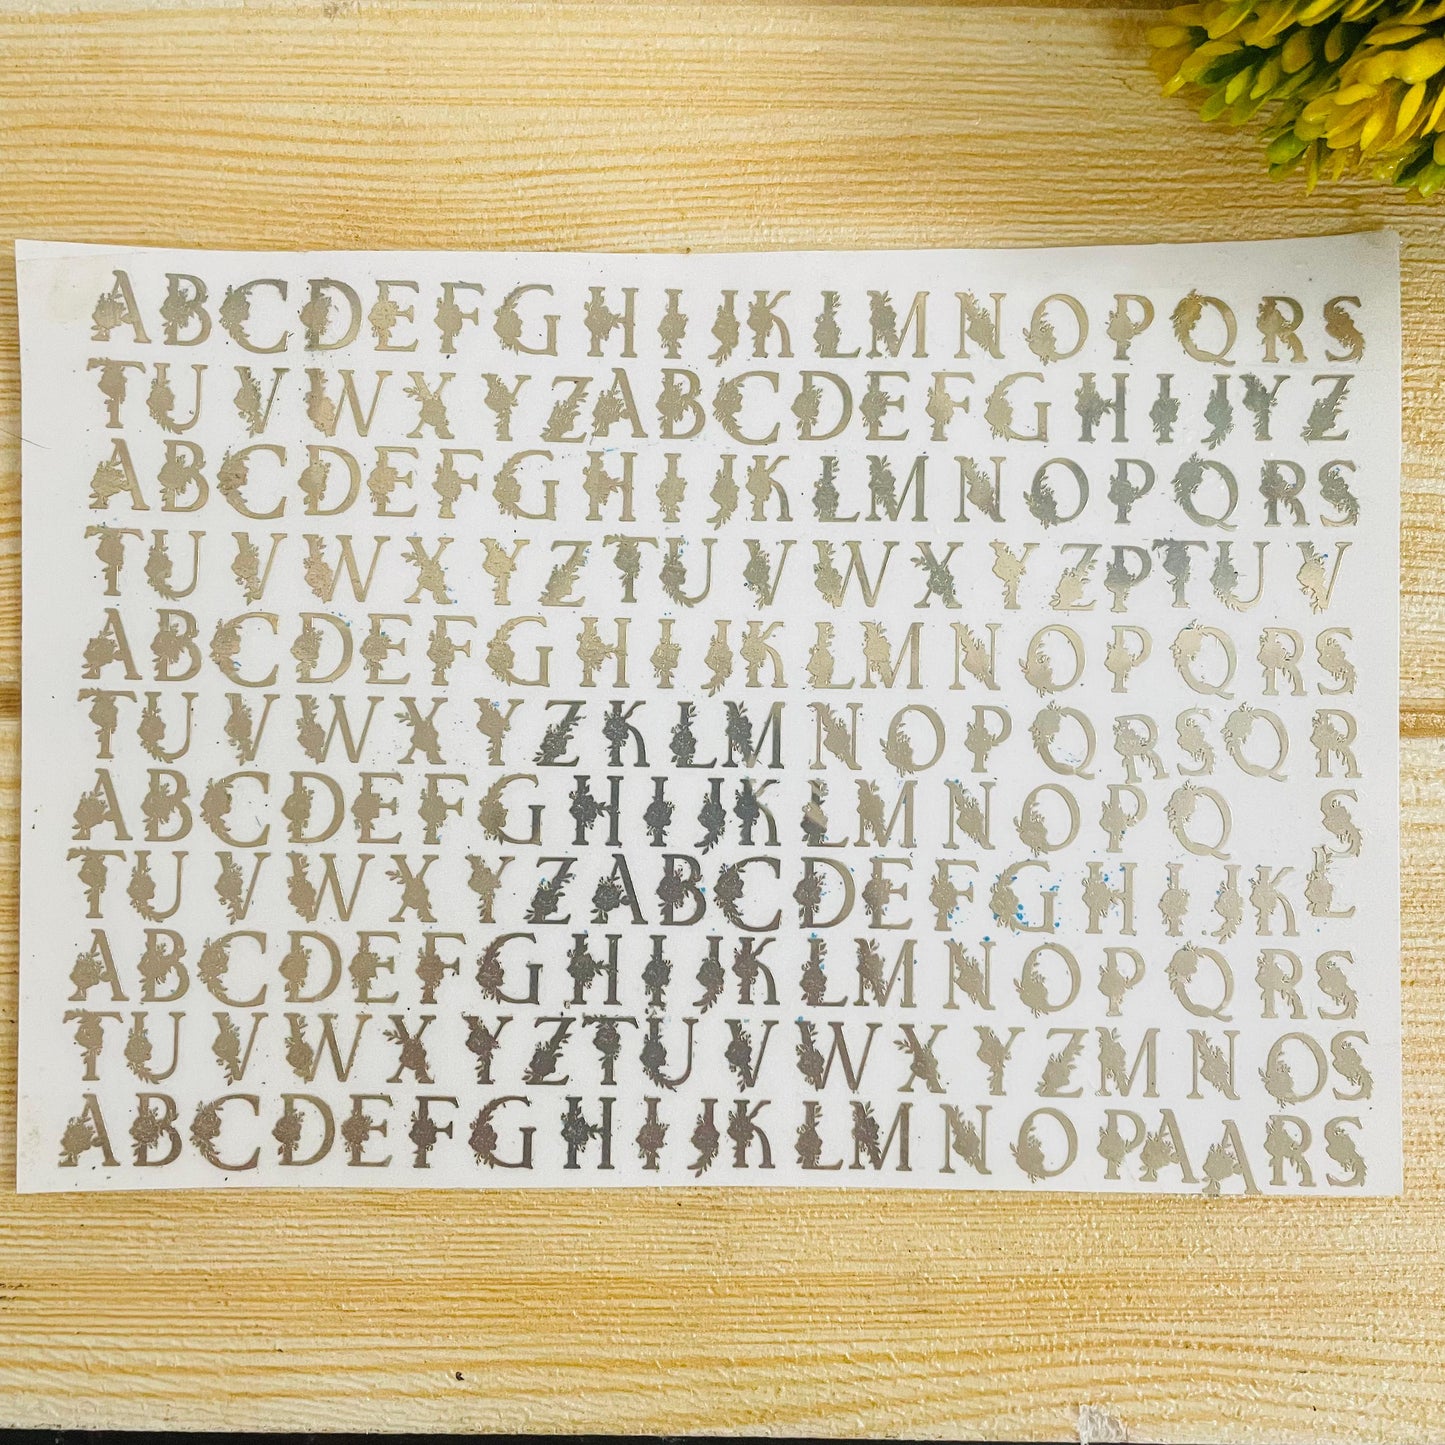 ABCDEFGHIJKLMNOPQRS
TUVWXYZABCDEFGHIJYZ
ABCDEFGHIJKLMNOPQRS
TUVWXYZTUVWXYZPTUV
ABCDEFGHIJKLMNOPQRS
TUVWXYZKLMNOPQRSQR
ABCDEFGHIJKLMNOPQ S
TUVWXYZABCDEFGHIJKL
ABCDEFGHIJKLMNOPQRS
TUVWXYZTUVWXYZMNOS
ABCDEFGHIJKLMNOPAARS